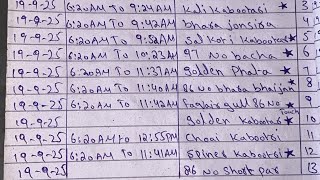 19-9-25 6:20AM TO 9:24AM kdi kabootasi ★ 3
19-9-25 6:20AM TO 9:42AM bhasa jonsisa 4
19-9-25 6:20AM TO 9:52AM sal kori kabootar 5
19-9-25 6:20AM TO 10,23AM 97 No bacha ★ 6
19-9-25 6:20AM TO 11:37AM golden Phata ★ 7
19-9-25 6:20AM TO 11:40AM 86 no bhata bhaijan 8
19-9-25 6:20AM TO 11:42AM gull 86 No ★ 9
19-9-25 golden kabootar ★ 10
19-9-25 6:20AM TO 12:55PM Choai kabootsi 11
19-9-25 6:20AM TO 11:41AM spines kabootsi ★ 12
19-9-25 86 no short par 13